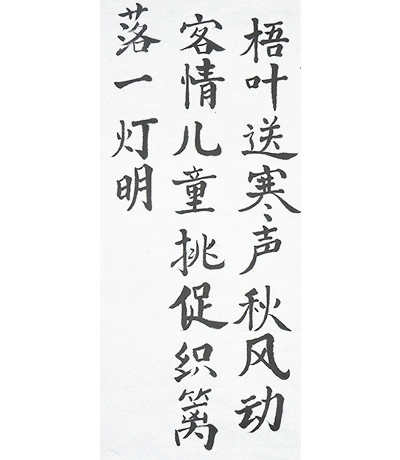 梧叶送寒声秋风动
客情儿童挑促织篱
落一灯明